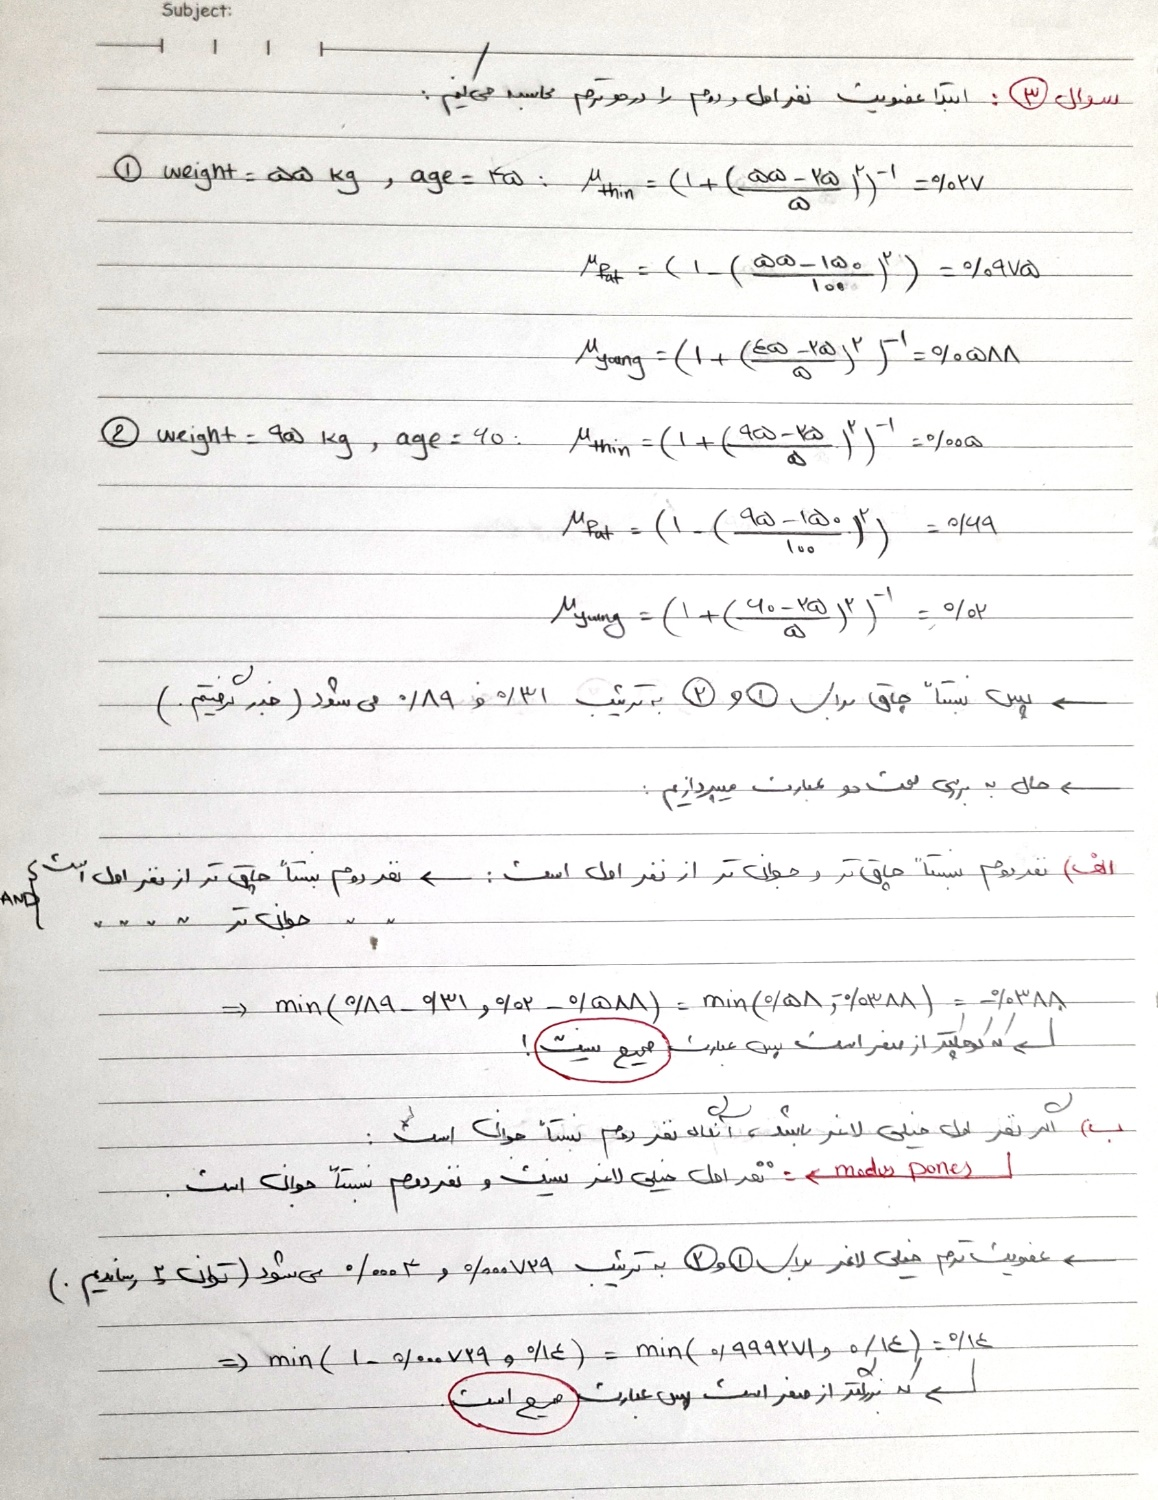 Subject:
سوال ③ : ابتدا عضویت نفر اول و دوم را در دو ترم محاسبه می‌کنیم :
① weight = ۵۵ kg , age = ۴۵ : μthin = (۱ + ((۵۵ - ۲۵)/۵)^۲)^-۱ = ۰/۰۲۷
μfat = (۱ - ((۵۵ - ۱۵۰)/۱۰۰)^۲) = ۰/۰۹۷۵
μyoung = (۱ + ((۴۵ - ۲۵)/۵)^۲)^-۱ = ۰/۰۵۸۸
② weight = ۹۵ kg , age = ۶۰ : μthin = (۱ + ((۹۵ - ۲۵)/۵)^۲)^-۱ = ۰/۰۰۵
μfat = (۱ - ((۹۵ - ۱۵۰)/۱۰۰)^۲) = ۰/۶۹
μyoung = (۱ + ((۶۰ - ۲۵)/۵)^۲)^-۱ = ۰/۰۲
← پس نسبتاً چاق برای ① و ② به ترتیب ۰/۳۱ و ۰/۸۹ می شود (جذر گرفتیم .)
← حال به بررسی صحت دو عبارت میپردازیم :
الف) نفر دوم نسبتاً چاق تر و جوان تر از نفر اول است : ← نفر دوم نسبتاً چاق تر از نفر اول است
AND
〃 〃 جوان تر 〃 〃 〃 〃
⇒ min(۰/۸۹ - ۰/۳۱ , ۰/۰۲ - ۰/۰۵۸۸) = min(۰/۵۸ , -۰/۰۳۸۸) = -۰/۰۳۸۸
← که کوچکتر از صفر است پس عبارت صحیح نیست !
ب) اگر نفر اول خیلی لاغر باشد ، آنگاه نفر دوم نسبتاً جوان است :
modus pones ← = نفر اول خیلی لاغر نیست و نفر دوم نسبتاً جوان است .
← عضویت ترم خیلی لاغر برای ① و ② به ترتیب ۰/۰۰۰۷۲۹ و ۰/۰۰۰۴ می شود (توان ۲ رساندیم .)
⇒ min( ۱ - ۰/۰۰۰۷۲۹ و ۰/۱۴ ) = min( ۰/۹۹۹۲۷۱ و ۰/۱۴ ) = ۰/۱۴
← که بزرگتر از صفر است پس عبارت صحیح است .